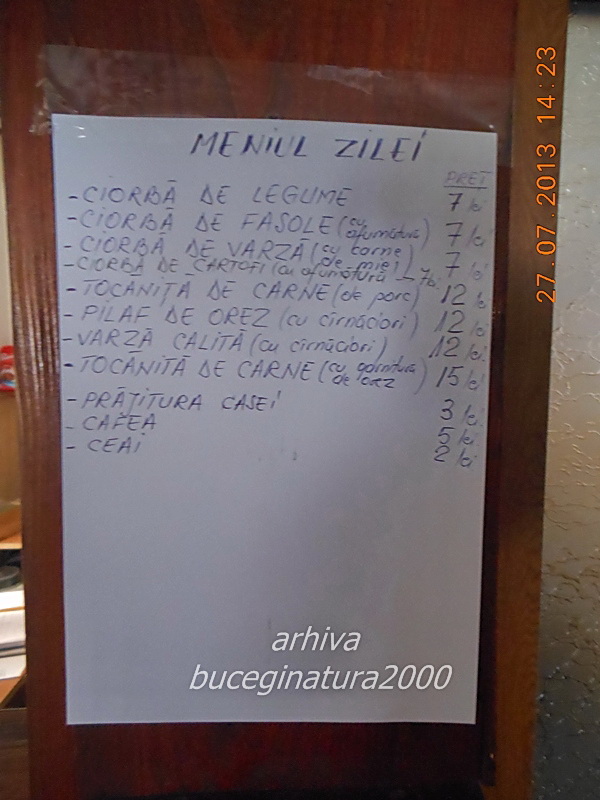 MENIUL ZILEI
PREȚ
- CIORBĂ DE LEGUME 7 lei
- CIORBĂ DE FASOLE (cu afumătura) 7 lei
- CIORBĂ DE VARZĂ (cu carne de miel) 7 lei
- CIORBĂ DE CARTOFI (cu afumătură - 7 lei
- TOCĂNIȚĂ DE CARNE (de porc) 12 lei
- PILAF DE OREZ (cu cîrnăciori) 12 lei
- VARZĂ CALITĂ (cu cîrnăciori) 12 lei
- TOCĂNITĂ DE CARNE (cu garnitura de orez) 15 lei
- PRĂȚITURA CASEI 3 lei
- CAFEA 5 lei
- CEAI 2 lei
arhiva
buceginatura2000
27.07.2013 14:23